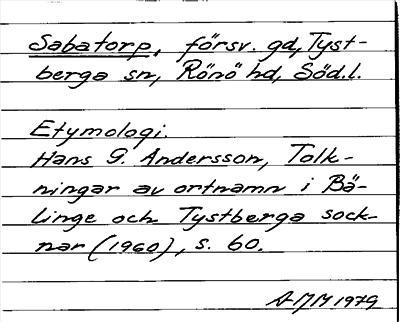 Sabatorp, försv. gd, Tyst-
berga sn, Rönö hd, Söd.l.
Etymologi.
Hans G. Andersson, Tolk-
ningar av ortnamn i Bä-
linge och Tystberga sock-
nar (1960), s. 60.
AMM 1979